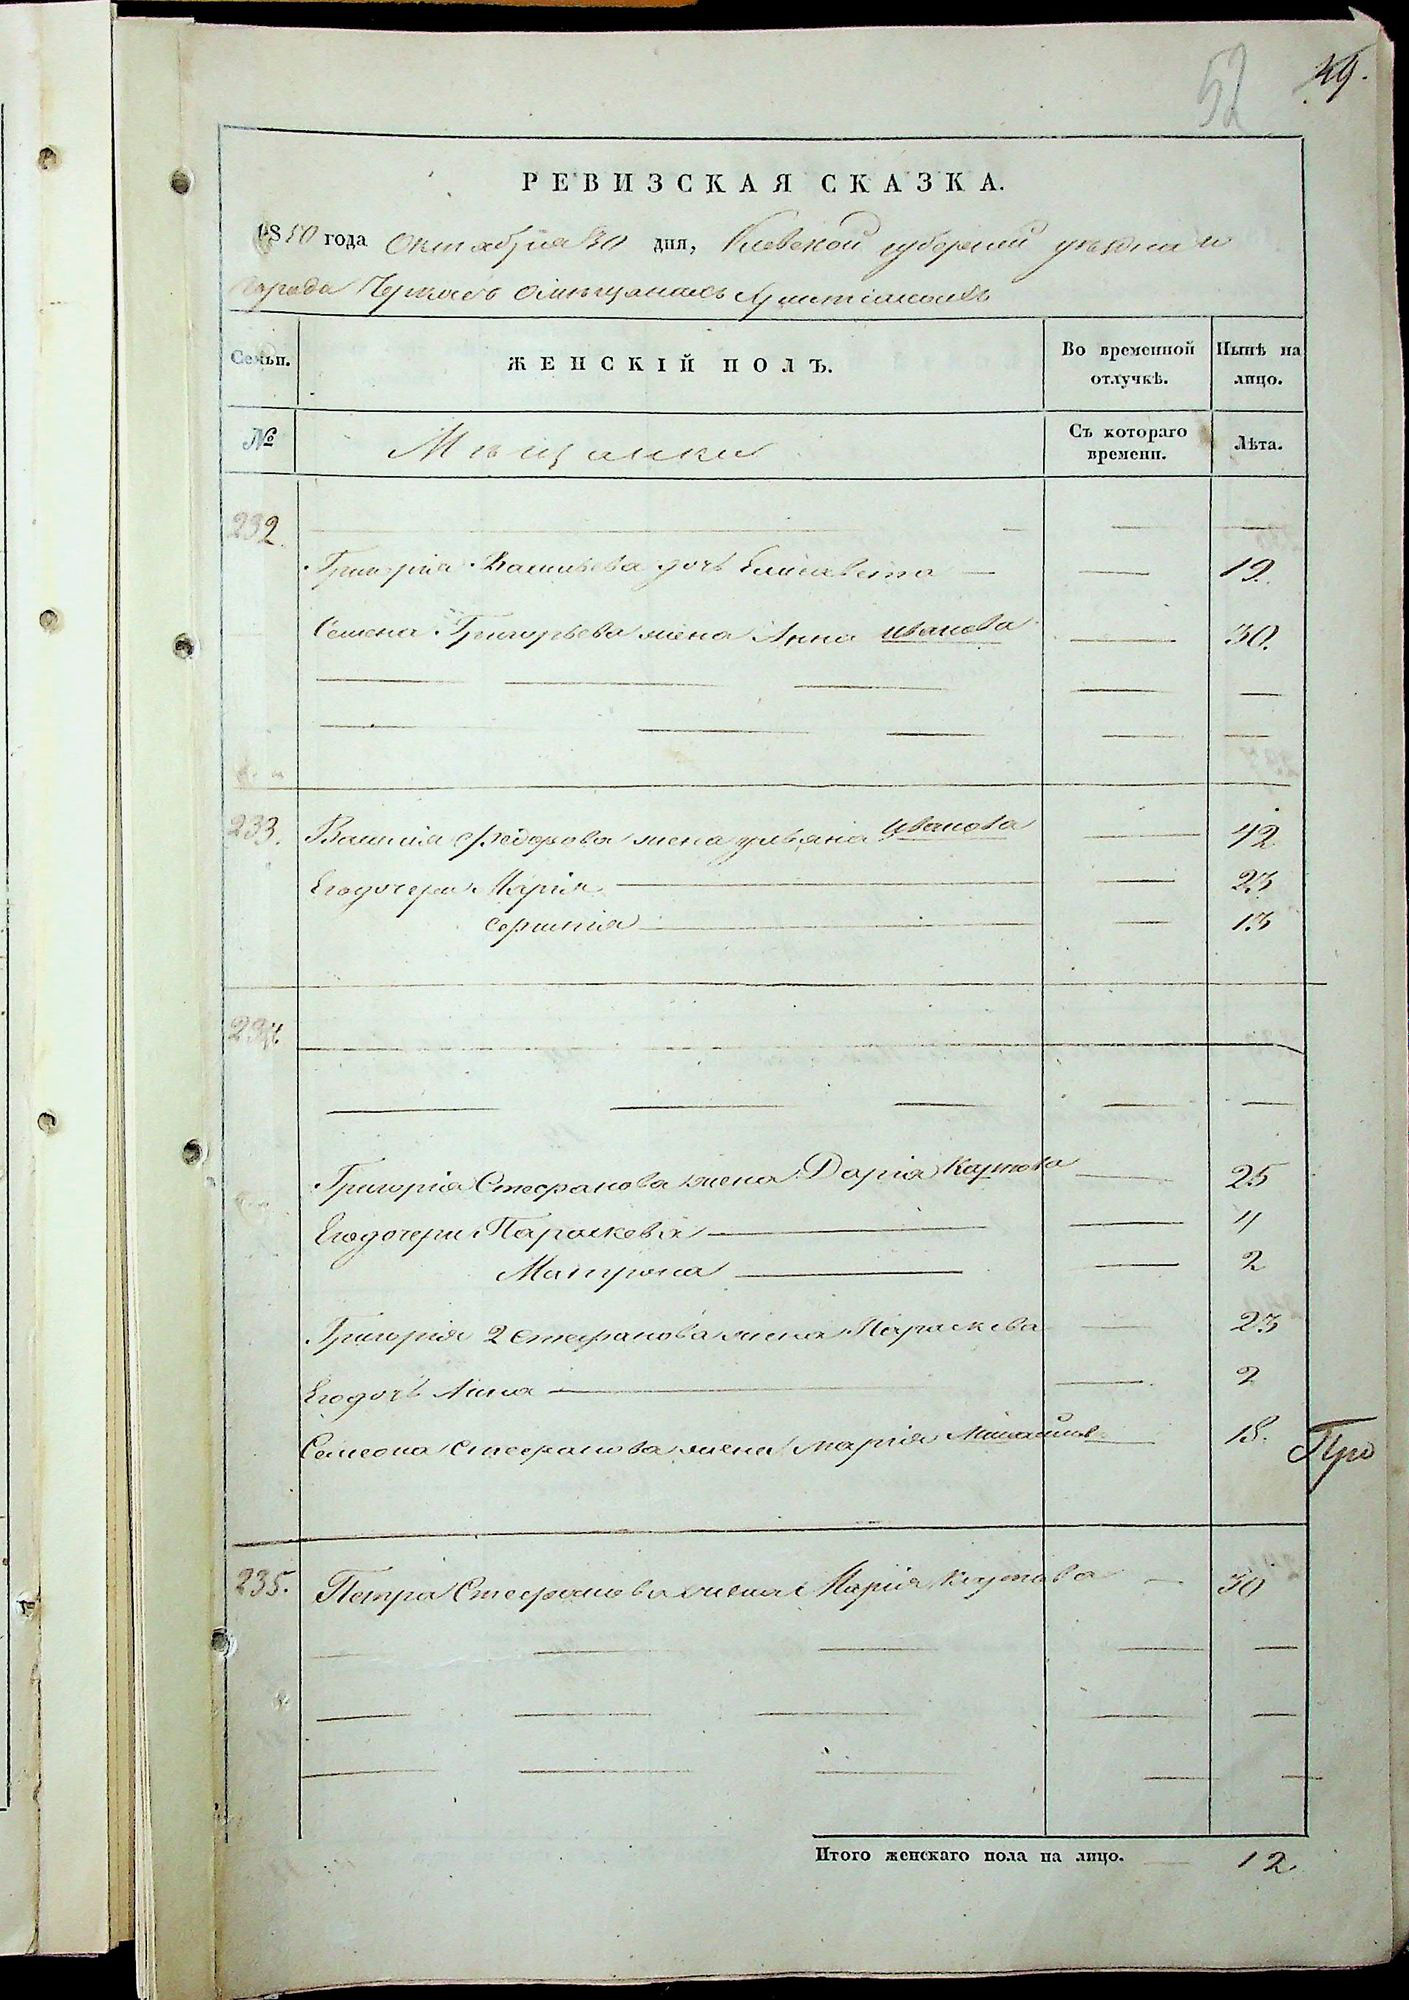 52 49.
РЕВИЗСКАЯ СКАЗКА.
1850 года Октября 30 дня, Киевской губернии уезда и
города Черкасъ о мѣщанахъ христіанахъ
Семьи. ЖЕНСКІЙ ПОЛЪ. Во временной отлучкѣ. Нынѣ на лицо.
№ Мѣщанки Съ котораго времени. Лѣта.
232
Григорія Васильева дочь Елисавета 19.
Семена Григорьева жена Анна Иванова 30.
233. Василія Федорова жена Ульяна Иванова 42
Его дочери Марія 23
13
234
Григорія Стефанова жена Дарія Карпова 25
Его дочери Параскевія 4
Матрона 2
Григорія 2 Стефанова жена Параскева 23
Его дочь Анна 2
Семена Стефанова жена Марія 18. Про
235. Петра Стефанова жена Марія 30
Итого женскаго пола на лицо. 12